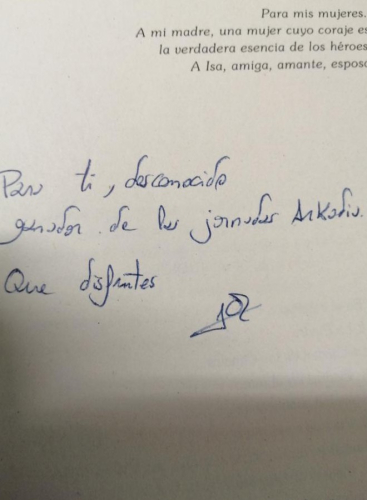 Para mis mujeres.
A mi madre, una mujer cuyo coraje es
la verdadera esencia de los héroes
A Isa, amiga, amante, esposa
Para ti, desconocido
ganador de las jornadas Arkadia.
Que disfrutes